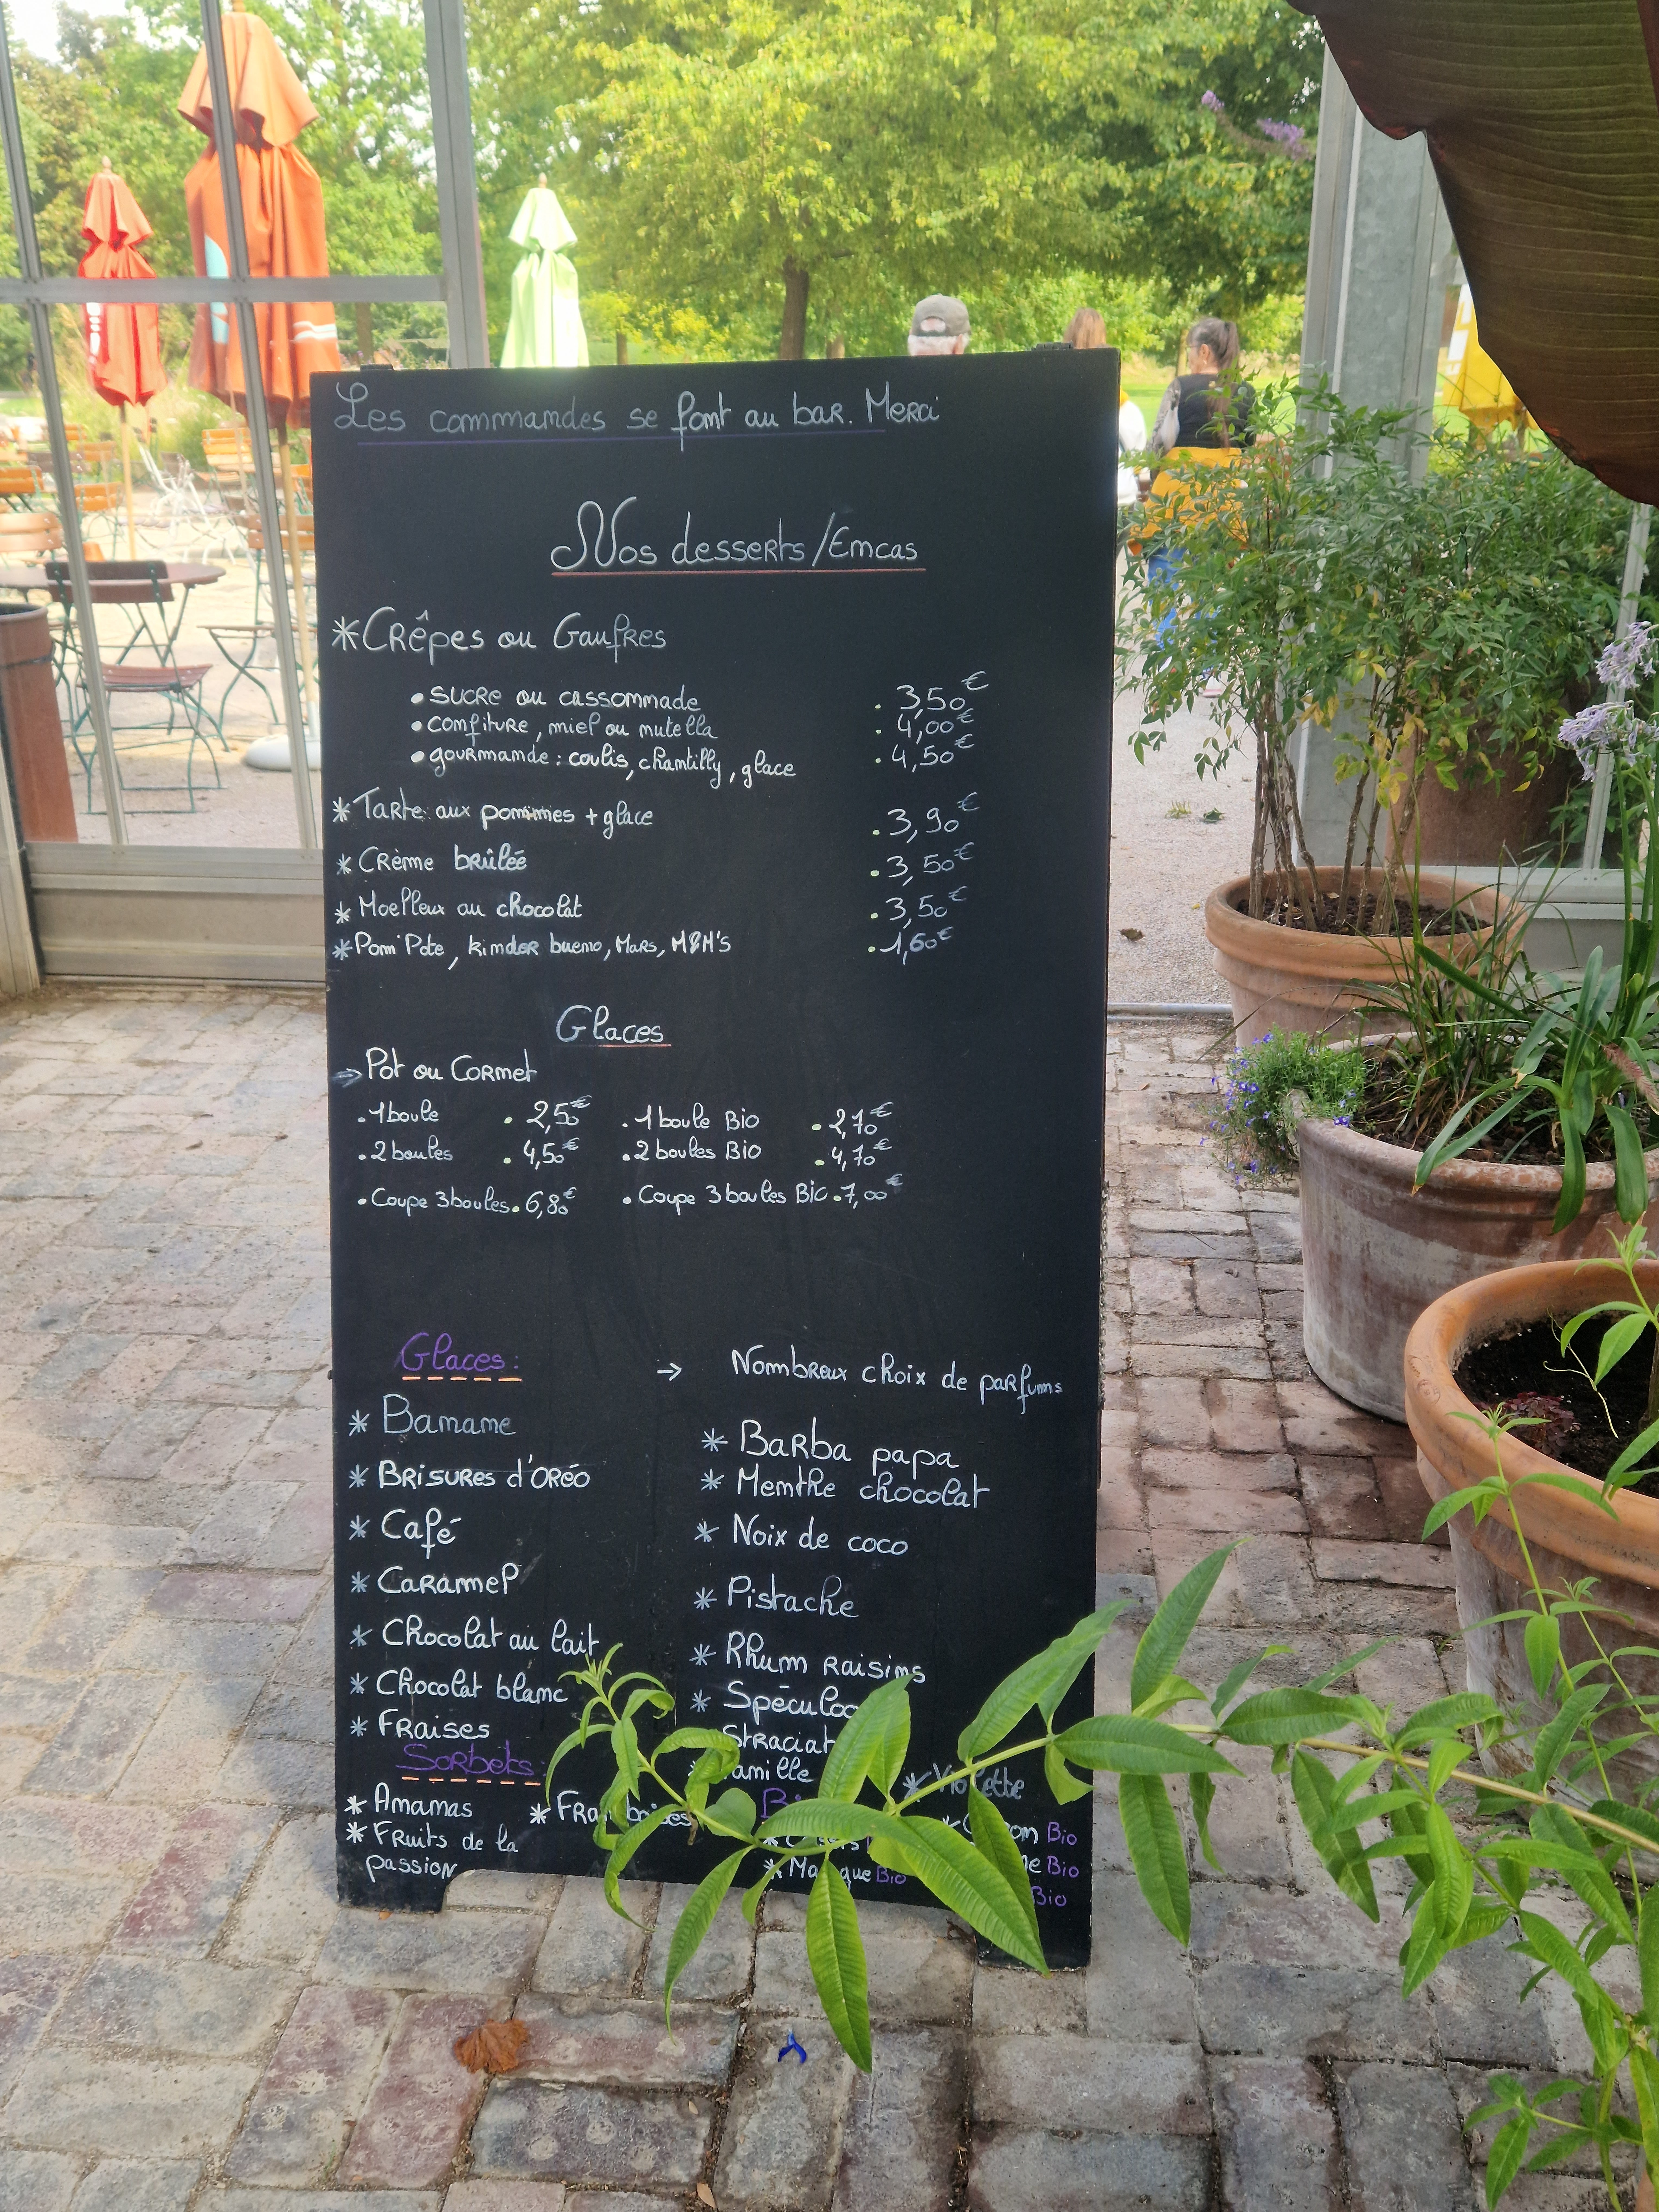 Les commandes se font au bar. Merci
Nos desserts/Encas
*Crêpes ou Gaufres
• sucre ou cassonnade . 3,50€
• confiture, miel ou nutella . 4,00€
• gourmande : coulis, chantilly, glace . 4,50€
* Tarte aux pommes + glace . 3,90€
* Crème brûlée . 3,50€
* Moelleux au chocolat . 3,50€
* Pom'Pote, kinder bueno, Mars, M&M's . 1,60€
Glaces
→ Pot ou Cornet
. 1 boule . 2,50€ . 1 boule Bio . 2,70€
. 2 boules . 4,50€ . 2 boules Bio . 4,70€
. Coupe 3 boules . 6,80€ . Coupe 3 boules Bio . 7,00€
Glaces : → Nombreux choix de parfums
* Banane
* Brisures d'Oréo
* Café
* Caramel
* Chocolat au lait
* Chocolat blanc
* Fraises
* Barba papa
* Menthe chocolat
* Noix de coco
* Pistache
* Rhum raisins
* Violette
Sorbets :
* Ananas
* Fruits de la
passion
Bio
Bio
Bio
Bio